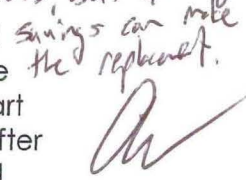 savings can make
the replacement.
e
art
fter